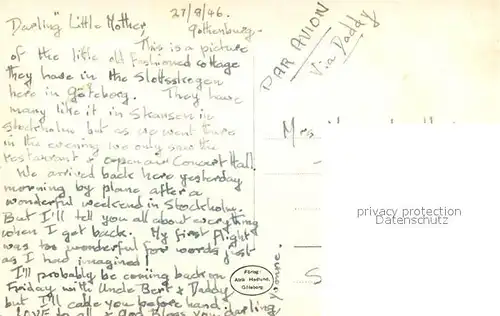 27/8/46.
Darling Little Mother,
Gothenburg.
This is a picture
of the little old fashioned cottage
they have in the Slottsskogen
here in Göteborg. They have
many like it in Skansen in
Stockholm but as we went there
in the evening we only saw the
restaurant & open air Concert Hall.
We arrived back here yesterday
morning by plane after a
wonderful weekend in Stockholm.
But I'll tell you all about everything
when I get back. My first flight
was too wonderful for words just
as I had imagined!
I'll probably be coming back on
Friday with Uncle Bert & Daddy
but I'll cable you before hand.
LOVE to all & God Bless you darling
PAR AVION
Via Daddy
Mrs
privacy protection
Datenschutz
S
Förlag:
Alfa
Göteborg